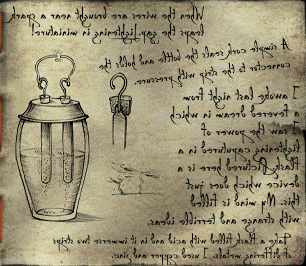 When the wires are brought near a spark
leaps the gap. Lightening in miniature!
A simple cork seals the bottle and holds the
connector to the strip with pressure.
I awoke last night from
a fevered dream in which
I saw the power of
lightening captured in a
flask. Pictured here is a
device which does just
this. My mind is filled
with strange and terrible ideas.
Take a flask filled with acid and in it immerse two strips
of differing metals. I used copper and zinc.